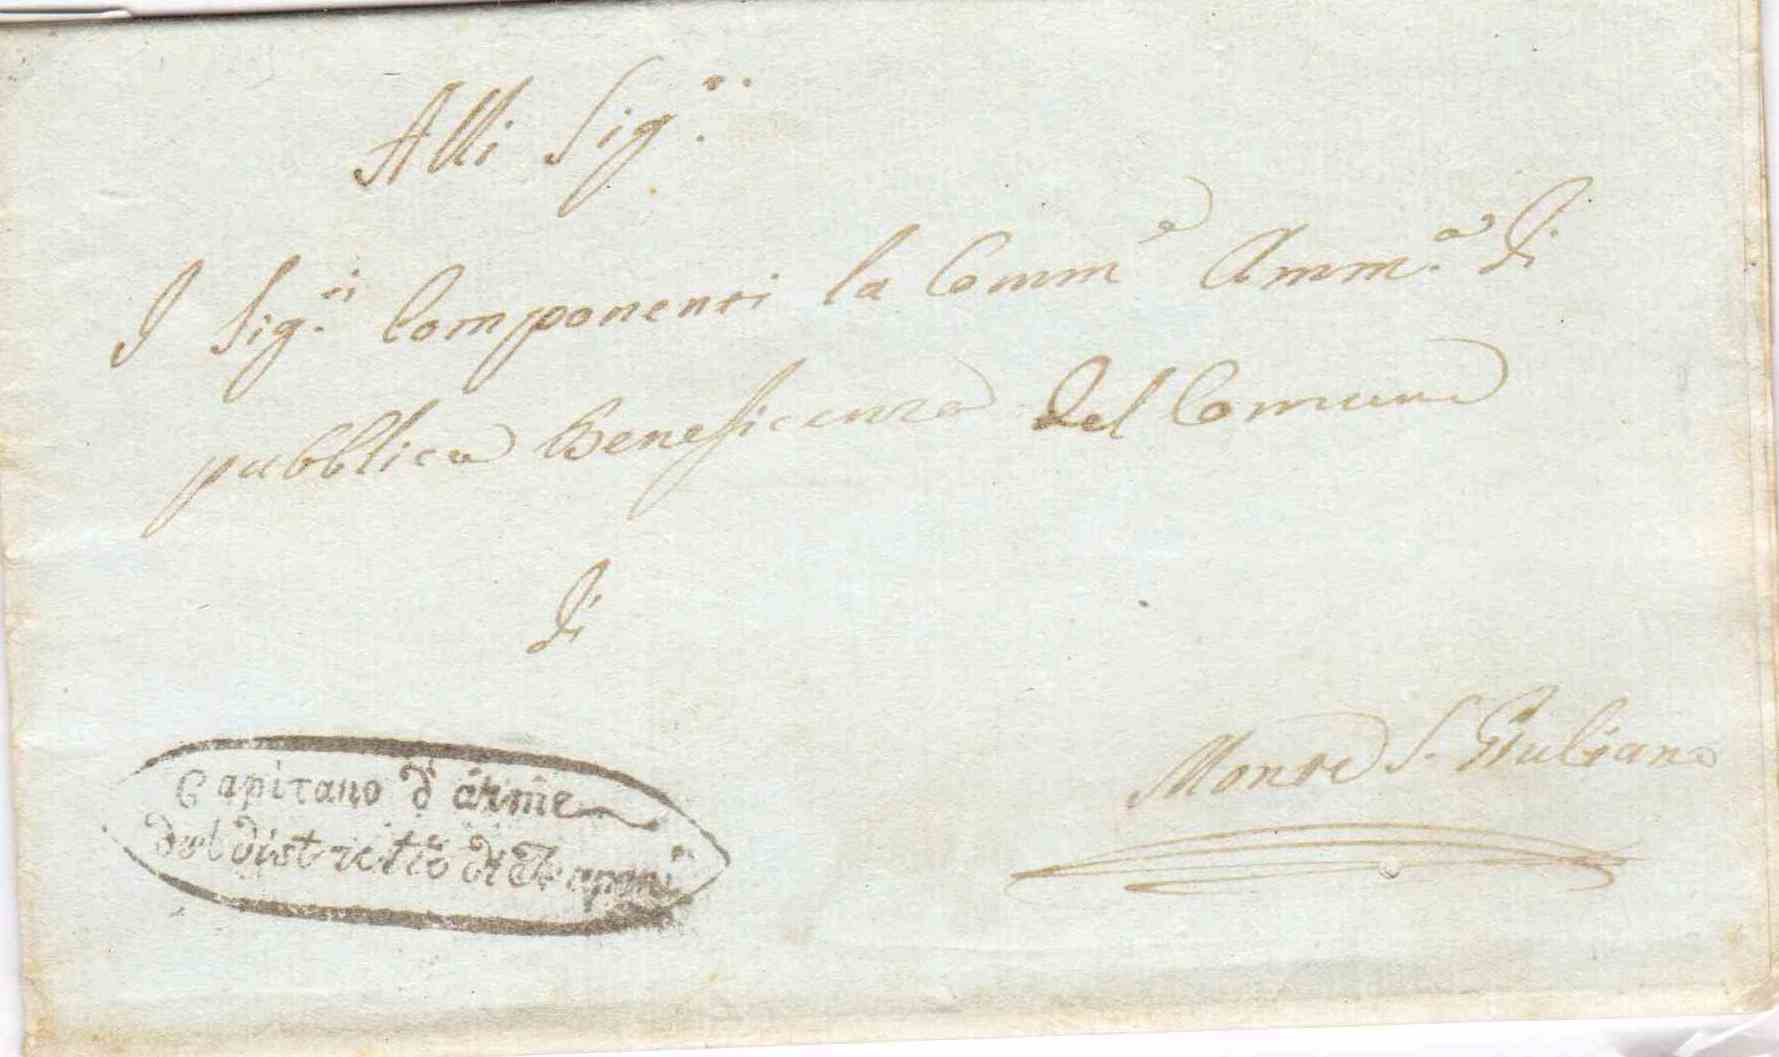 Alli Sig.ri
I Sig.ri Componenti la Comme Amm.a di
pubblica Beneficenza del Comune
di
Monte S. Giuliano
Capitano d'arme
del distretto di Trapani